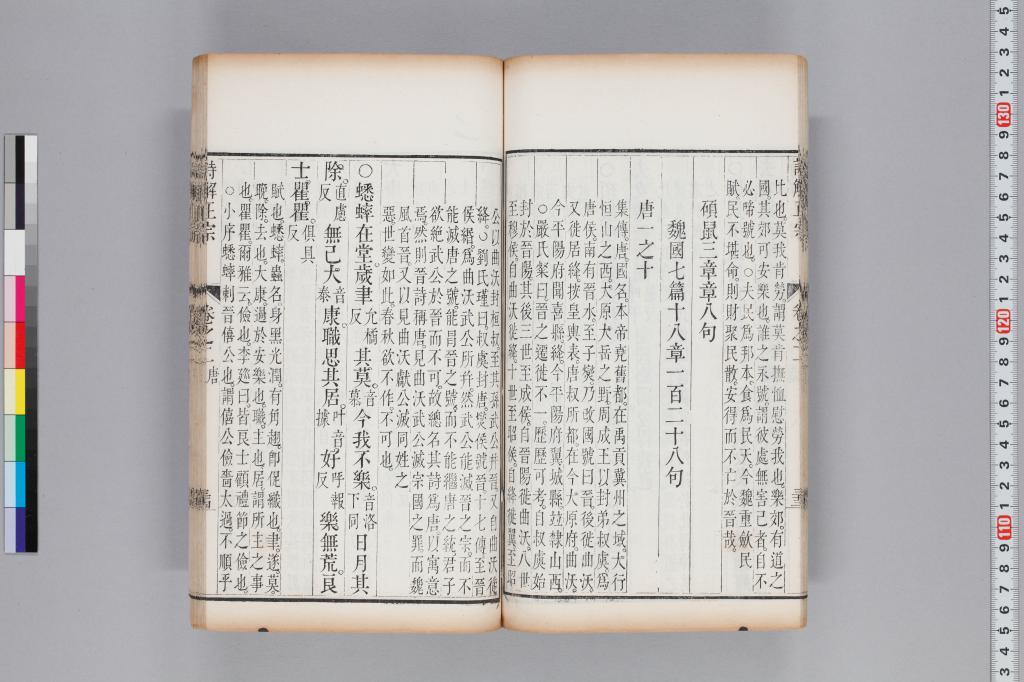 比也。莫我肯勞。謂莫肯撫恤慰勞我也。樂郊。有道之
國。其郊可安樂也。誰之永號。謂彼處無害己者。自不
必啼號也。○夫民爲邦本。食爲民天。今魏重斂民
賦。民不堪命。則財聚民散。安得而不亡於晉哉。
碩鼠三章章八句
魏國七篇十八章一百二十八句
唐一之十
集傳。唐。國名。本帝堯舊都。在禹貢冀州之域。大行
恒山之西。太原大岳之野。周成王以封弟叔虞。爲
唐侯。南有晉水。至子燮乃改國號曰晉。後徙曲沃。
又徙居絳。按皇輿表。唐叔所都。在今大原府。曲沃。
今平陽府聞喜縣。絳。今平陽府翼城縣。竝隸山西。
○嚴氏粲曰。晉之遷徙不一。歷歷可考。自叔虞始
封於晉陽。其後三世至成侯。自晉陽徙曲沃。八世
至穆侯。自曲沃徙絳。十世至昭侯。自絳徙翼。至昭
公以曲沃封桓叔。至其孫武公幷晉。又自曲沃後
絳。○劉氏瑾曰。叔虞封唐。燮侯號晉。十七傳至晉
侯緡。爲曲沃武公所幷。然武公能滅晉之宗。而不
能滅唐之號。能冐晉之號。而不能繼唐之統。君子
欲絕武公於晉而不可。故總名其詩爲唐。以寓意
焉。然則晉詩稱唐。見曲沃武公滅宗國之罪。而魏
風首晉。又以見曲沃獻公滅同姓之
惡。世變如此。春秋欲不作。不可也。
○蟋蟀在堂歲聿允橘反其莫。音慕今我不樂。音洛下同日月其
除。直慮反無已大音泰康職思其居。叶音據好呼報反樂無荒良
士瞿瞿。俱具反
賦也。蟋蟀。蟲名。身黑光潤。有角翅。卽促織也。聿。遂。莫。
晚。除。去也。大康。過於安樂也。職。主也。居。謂所主之事
也。瞿瞿。爾雅云。儉也。李廵曰。皆良士顧禮節之儉也。
○小序。蟋蟀刺晉僖公也。謂僖公儉嗇太過。不順乎
詩解正宗
卷之二
唐